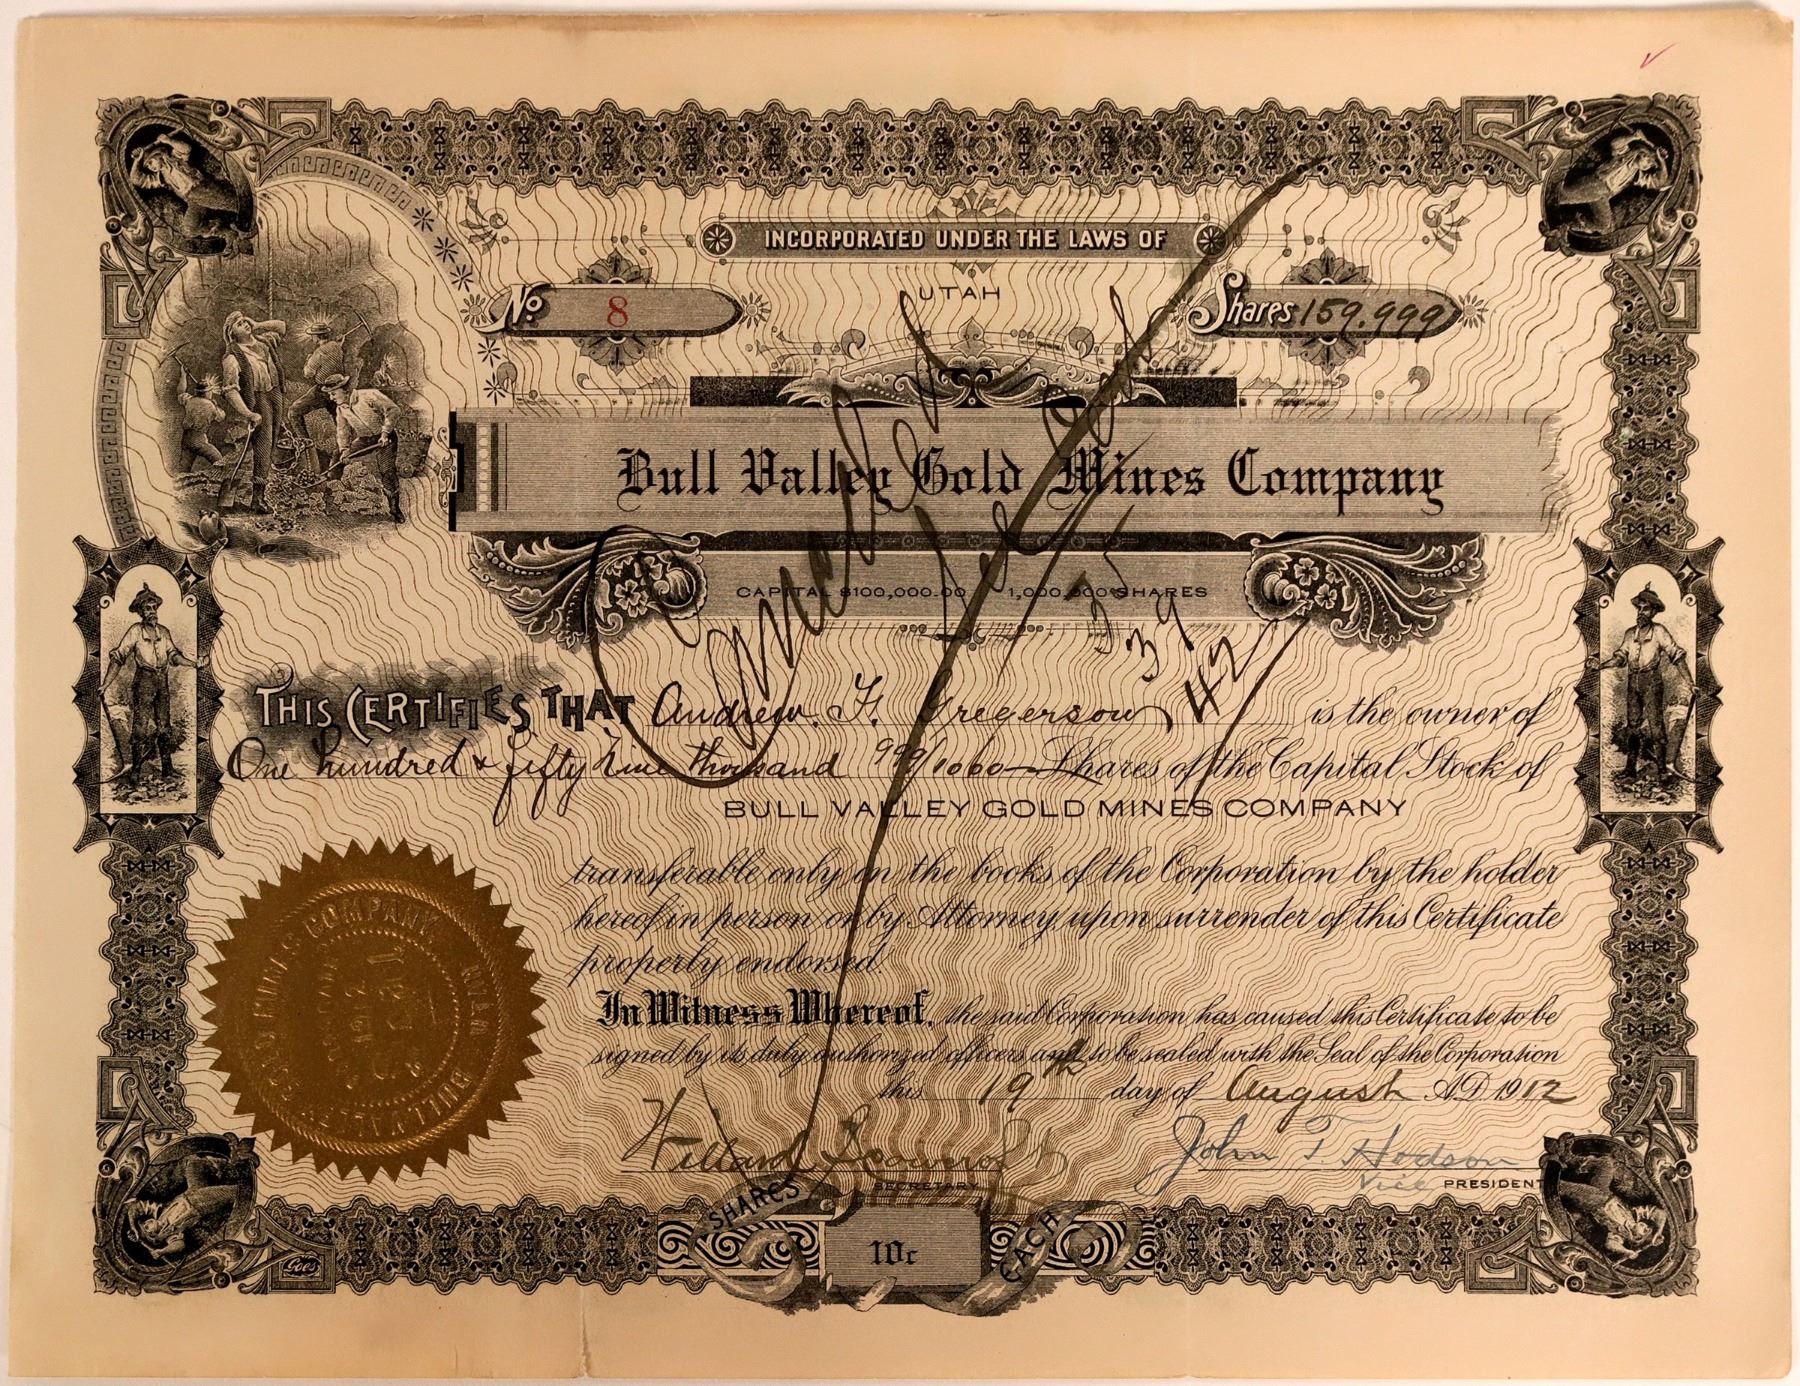 INCORPORATED UNDER THE LAWS OF
UTAH
No 8
Shares 159,999
Bull Valley Gold Mines Company
CAPITAL $100,000.00 1,000,000 SHARES
Cancelled
35
39
42
THIS CERTIFIES THAT Andrew. F. Gregerson is the owner of
One hundred & fifty nine thousand 999/1000 Shares of the Capital Stock of
BULL VALLEY GOLD MINES COMPANY
transferable only on the books of the Corporation by the holder
hereof in person or by Attorney upon surrender of this Certificate
properly endorsed.
In Witness Whereof, the said Corporation has caused this Certificate to be
signed by its duly authorized officers and to be sealed with the Seal of the Corporation
this 19th day of August A.D. 1912
Willard Scowcroft
John T Hodson
SECRETARY
Vice PRESIDENT
SHARES 10c EACH
Goes
BULL VALLEY GOLD MINES COMPANY
UTAH